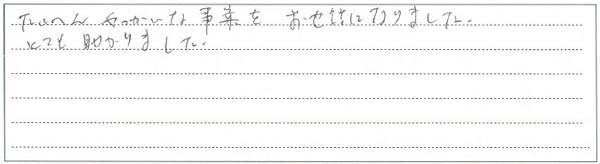 たいへんやっかいな事案をお世話になりました。
とても助かりました。